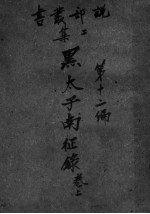 說部叢書
二集
第十二編
黑太子南征錄卷上